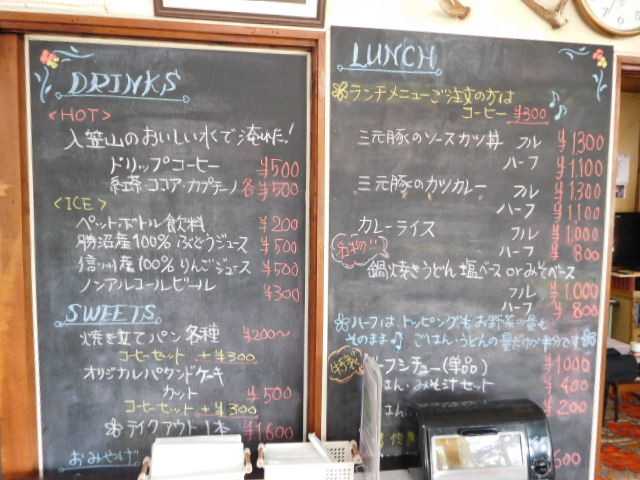 DRINKS
<HOT>
入笠山のおいしい水で淹れた!
ドリップコーヒー ¥500
紅茶・ココア・カプチーノ 各¥500
<ICE>
ペットボトル飲料 ¥200
勝沼産100%ぶどうジュース ¥500
信州産100%りんごジュース ¥500
ノンアルコールビール ¥300
SWEETS
焼き立てパン各種 ¥200〜
コーヒーセット +¥300
オリジナルパウンドケーキ
カット ¥500
コーヒーセット +¥300
テイクアウト1本 ¥1,600
おみやげ
LUNCH
ランチメニューご注文の方は
コーヒー ¥300
三元豚のソースカツ丼 フル ¥1300
ハーフ ¥1,100
三元豚のカツカレー フル ¥1,300
ハーフ ¥1,100
カレーライス フル ¥1,000
ハーフ ¥800
鍋焼きうどん 塩ベース or みそベース
フル ¥1,000
ハーフ ¥800
ハーフは、トッピングもお野菜の量も
そのまま♪ ごはん・うどんの量だけが半分です
ーフシチュー(単品) ¥1000
はん・みそ汁セット ¥400
はん ¥200
500